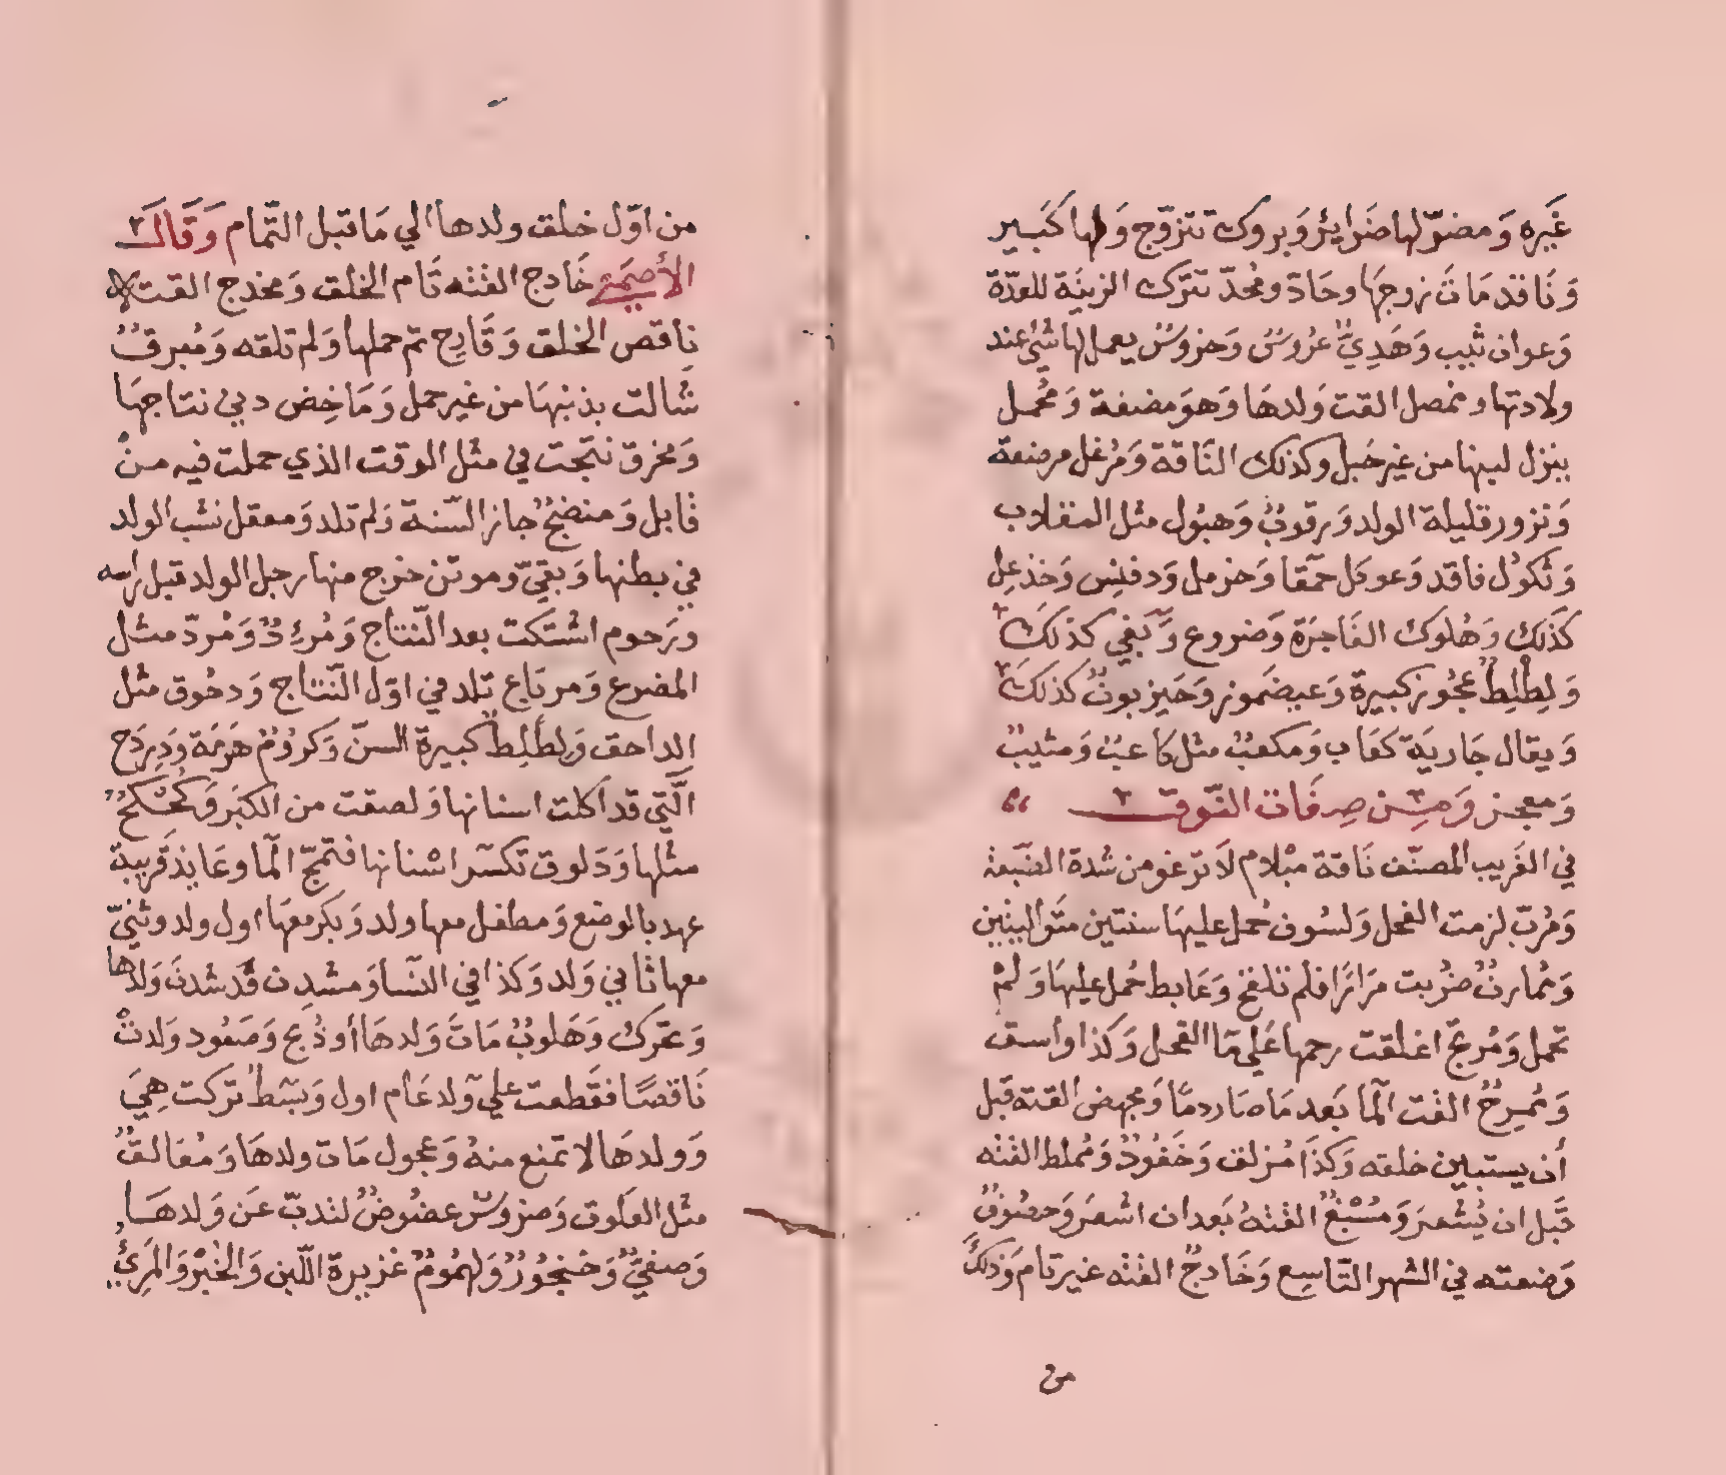 غَيره وَمضرّ لها ضَرايرُ وَبروك تتزوّج وَلها كَبير
وَنَاقد مَاتَ زوجهَا وحَادّ ومُحدّ تترك الزينَة للعدّة
وَعوان ثيب وَهَدِيٌّ عرُوسٌ وَخروسٌ يعمل لها شئ عند
ولادتها وممصل القت وَلدهَا وَهوَ مضغة وَمُحمل
ينزل لبنها من غير حَبل وكذلك النَاقة وَمُرغل مرضعة
وَنزور قليلة الولد وَرقوبٌ وَهبُول مثل المقلات
وَثكوُل فاقد وَعوكل حمَقا وَخزمل وَدفنِس وَخذعِل
كَذَلك وَهُلوك الفَاجرَة وَضروع وَبَغي كذلكَ
وَلِطْلِطٌ عجُوز كبيرة وَعيضَموز وَحَيزبونٌ كذلكَ
وَيقال جَاريَة كعَاب وَمكعبٌ مثل كاعبٌ وَمثيبٌ
وَمعجز وَمِن صِفَات النّوق
في الغَريب المصنّف نَاقة مبْلام لاَ ترغو من شدة الضَبَعة
وَمُربّ لزمت الفحل وَلسُوف حُمل عليهَا سنتين متَواليتين
وَمُمارنٌ ضرُبت مرَارًا فلم تلقح وَعَايط حُمل عليهَا وَلمْ
تحمل وَمُرتجّ اغلقت رحمها عَلي مَا الفحل وَكذا واسق
وَمُمرِحٌ القت المآ بَعد مَا صَار دمًا وَمجهض القته قَبل
أن يستبين خلقه وَكذَا مُزلق وَخَفُودٌ وَمُملط القته
قَبل ان يُشعرَ وَمُسْبغٌ القتهُ بَعد ان اشعَرَ وَخصُوفٌ
وَضعته في الشهر التّاسِع وَخَادجٌ القته غير تام وَذلكَ
من
من اوّل خلق ولدها الي مَا قبل التّمام وَقَالَ
الأصمَعي خَادج القته تَام الخلق وَمخدج القته
ناقص الخلق وَقَارِح تم حملها وَلم تلقه وَمُبرقٌ
شَالت بذنبهَا من غير حمل وَمَاخِض دني نتاجهَا
وَمخرق نتجت في مثل الوقت الذي حملت فيه منْ
قَابل وَمنضجٌ جاز السّنة وَلم تلد وَمعقل نشب الولد
في بطنها وَبَقيّ وموتن خرج منها رجل الولد قبل راسه
ورَحوم اشتكت بعد النّتاج وَمُرِدٌّ وَمُردّ مثل
المضرع وَمرتَاع تلد في اوّل النّتاج وَدحُوق مثل
الداحق وَلطْلِطٌ كبيرة السنّ وَكرُومٌ هَرمَة وَدِردَح
الَّتي قد اكلت اسنانها وَلصقت من الكبَر وَكُحْكحٌ
مثلها وَدَلوق تكسّر اسْنانها فتمجّ المآ وعَايذ قَريبة
عهد بالوضع وَمطفل معها ولد وَبكر معهَا اول ولد وثنيّ
معها ثَاني وَلد وَكذا في النسَا وَمشدِن قَد شدنَ وَلدها
وَعَرَك وَهَلوبٌ مَاتَ وَلدهَا أو ذُبح وَصَعُود وَلدتْ
نَاقصًا فعَطفت علي ولد عَام اول وَبسَطٌ تركت هِيَ
وَوَلدهَا لا تمنع منهُ وَعجول مَات ولدهَا وَمُغالقٌ
مثل العَلوق وَضروَسٌ عضُوضٌ لتدبّ عَن وَلدهَا
وَصَفيٌّ وَخُنجُورٌ وَلهمُومٌ غزيرة اللّبن وَالخبْرُ وَالمَرِيُّ